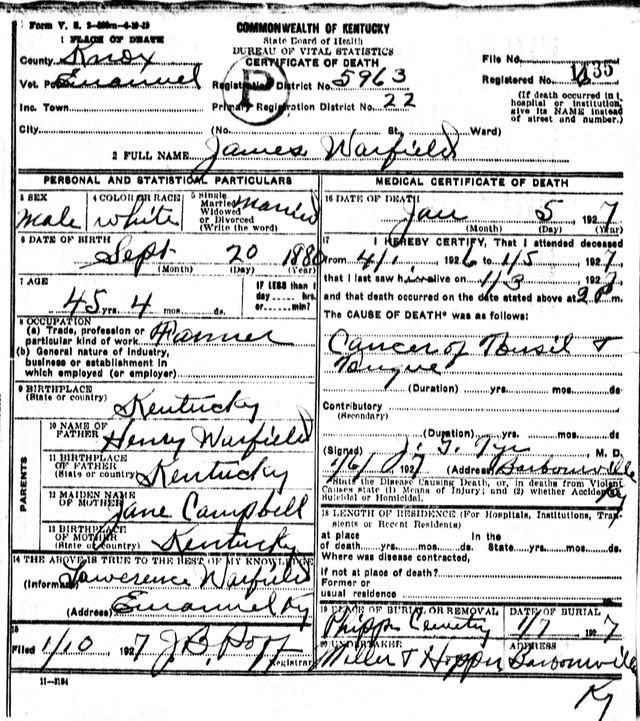 Form V. S. 2-200m-4-19-19
COMMONWEALTH OF KENTUCKY
State Board of Health
BUREAU OF VITAL STATISTICS
CERTIFICATE OF DEATH
1 PLACE OF DEATH
County Knox
Vot. Emanuel
Inc. Town
City
P
Registration District No. 5963
Primary Registration District No. 22
File No.
Registered No. 1435
(If death occurred in
hospital or institution,
give its NAME instead
of street and number.)
(No. St. Ward)
2 FULL NAME James Warfield
PERSONAL AND STATISTICAL PARTICULARS
3 SEX
Male
4 COLOR OR RACE
white
5 Single
Married
Widowed
or Divorced
(Write the word)
Married
6 DATE OF BIRTH
Sept 20 1880
(Month) (Day) (Year)
7 AGE
45 yrs. 4 mos. ds.
IF LESS than 1
day hrs.
or min?
8 OCCUPATION
(a) Trade, profession or
particular kind of work Farmer
(b) General nature of industry,
business or establishment in
which employed (or employer)
9 BIRTHPLACE
(State or country)
Kentucky
PARENTS
10 NAME OF
FATHER
Henry Warfield
11 BIRTHPLACE
OF FATHER
(State or country)
Kentucky
12 MAIDEN NAME
OF MOTHER
Jane Campbell
13 BIRTHPLACE
OF MOTHER
(State or country)
Kentucky
14 THE ABOVE IS TRUE TO THE BEST OF MY KNOWLEDGE
(Informant) Lawerence Warfield
(Address) Emanuel Ky
15
Filed 1/10 1927 J. B.
Registrar
11-3184
MEDICAL CERTIFICATE OF DEATH
16 DATE OF DEATH
Jan 5 1927
(Month) (Day) (Year)
17 I HEREBY CERTIFY, That I attended deceased
from 4/1 1926 to 1/5 1927
that I last saw h alive on 1/3 1927
and that death occurred on the date stated above at 2 P m.
The CAUSE OF DEATH* was as follows:
Cancer of Tonsil &
Tongue
(Duration) yrs. mos. ds.
Contributory
(Secondary)
(Duration) yrs. mos. ds.
(Signed) J. G. Tye M. D.
1/6/ 1927 (Address) Barbourville
Ky
*State the Disease Causing Death, or, in deaths from Violent
Causes state (1) Means of Injury; and (2) whether Accidental,
Suicidal or Homicidal.
18 LENGTH OF RESIDENCE (For Hospitals, Institutions, Tran-
sients or Recent Residents)
at place In the
of death yrs. mos. ds. State yrs. mos. ds.
Where was disease contracted,
If not at place of death?
Former or
usual residence
19 PLACE OF BURIAL OR REMOVAL
Phipps Cemetry
DATE OF BURIAL
1/7 1927
20 UNDERTAKER
Miller & Hopper
ADDRESS
Barbourville
Ky